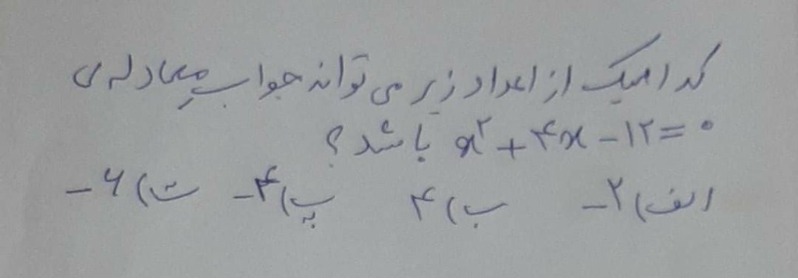 کدامیک از اعداد زیر می تواند جواب معادله ی
x²+۴x-۱۲=۰ باشد؟
الف) -۲ ب) ۴ پ) -۴ ت) -۶